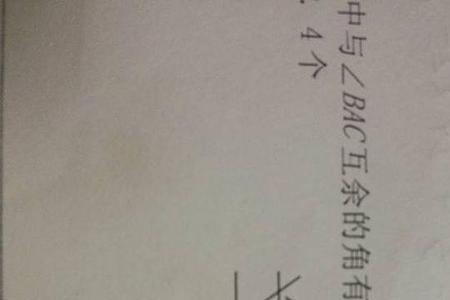 中与∠BAC互余的角有
4个